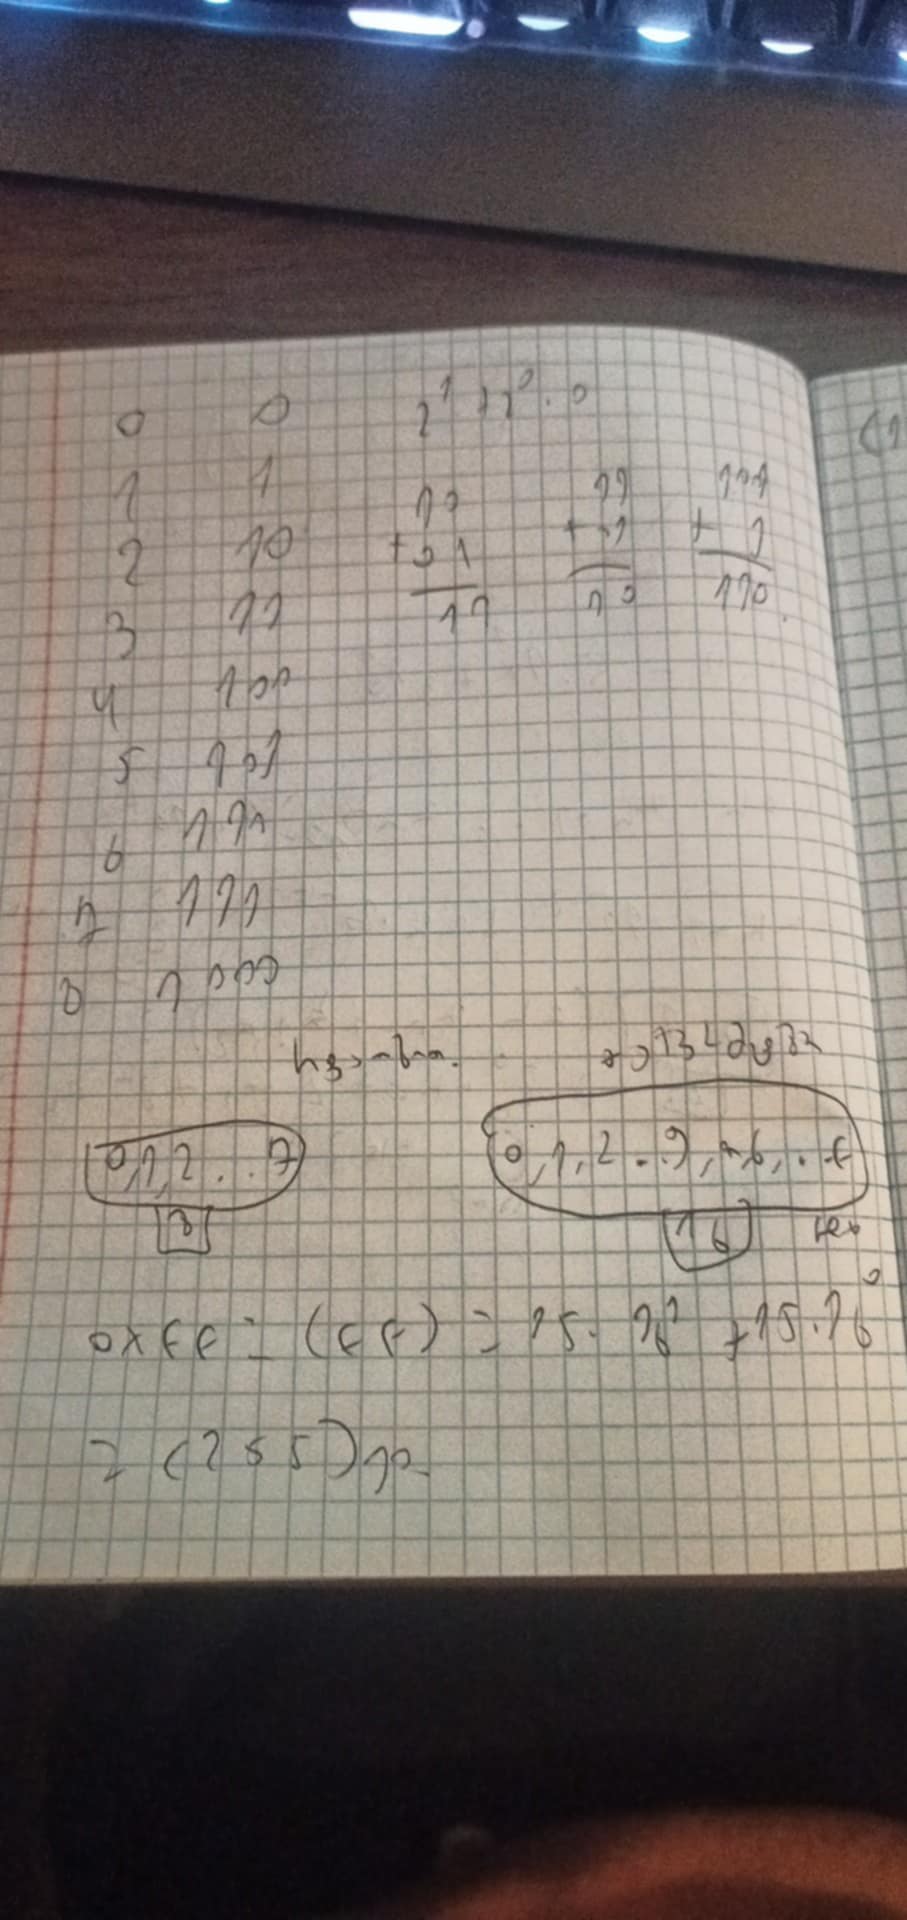 0 0 2¹ + 2⁰ · 0
1 1
2 10
3 11
4 100
5 101
6 110
7 111
8 1000
10
+ 01
11
11
+ 01
10
101
+ 1
110
0,1,2 . . 7
8
0,1,2 . . 9, a, b, . . f
16 hex
0xff = (ff) = 15 · 16¹ + 15 · 16⁰
= (255)10